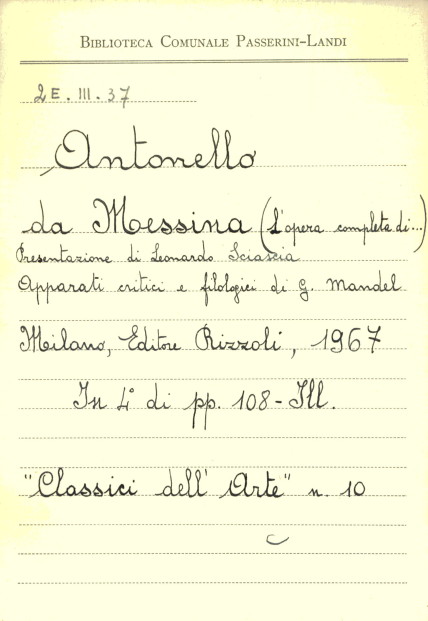 BIBLIOTECA COMUNALE PASSERINI-LANDI
2E. III. 37
Antonello
da Messina (L'opera completa di...)
Presentazione di Leonardo Sciascia
Apparati critici e filologici di G. Mandel
Milano, Editore Rizzoli, 1967
In 4° di pp. 108 - Ill.
"Classici dell' Arte" n. 10
C